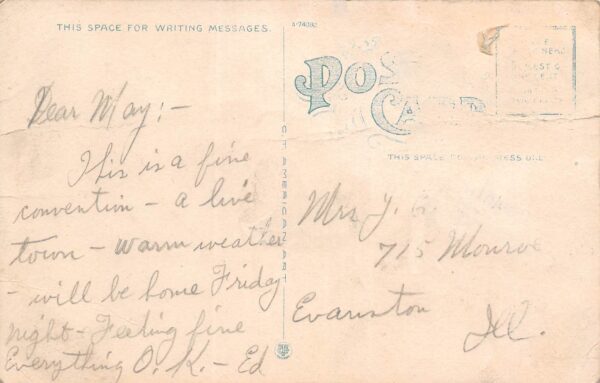 THIS SPACE FOR WRITING MESSAGES.
A-74092
POST
CARD
THIS SPACE FOR ADDRESS ONLY
C.T. AMERICAN ART
Dear May:—
This is a fine
convention — a live
town — warm weather
- will be home Friday
night - Feeling fine
Everything O.K. — Ed
Mrs J.
715 Monroe
Evanston
Ill.